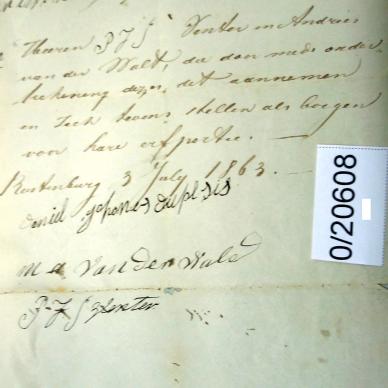 Heeren P J S Venter en Andries
van der Walt, die door mede onder-
tekening dezes, dit aannemen
en zech tevens stellen als borgen
voor hare erfportie.
Rustenburg 3 July 1863.
daniel du plsis
M A Van Der Wald
P. J S Venter
0/20608